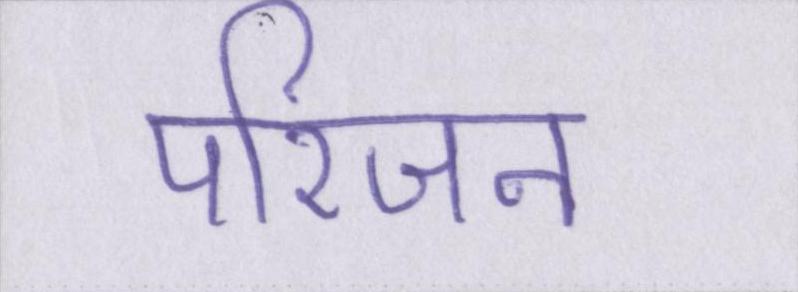 परिंजन